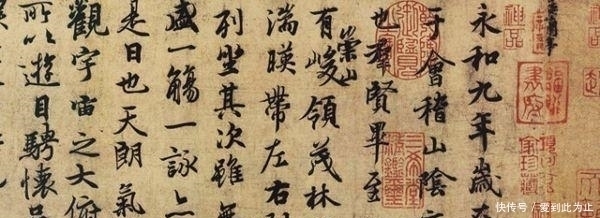 神品
永和九年歲在
于會稽山陰
也羣賢畢至
崇山
有峻領茂林
湍暎帶左右
列坐其次雖無
盛一觴一詠
是日也天朗氣
觀宇宙之大俯
所以遊目騁懷
快传号 / 爱到此为止